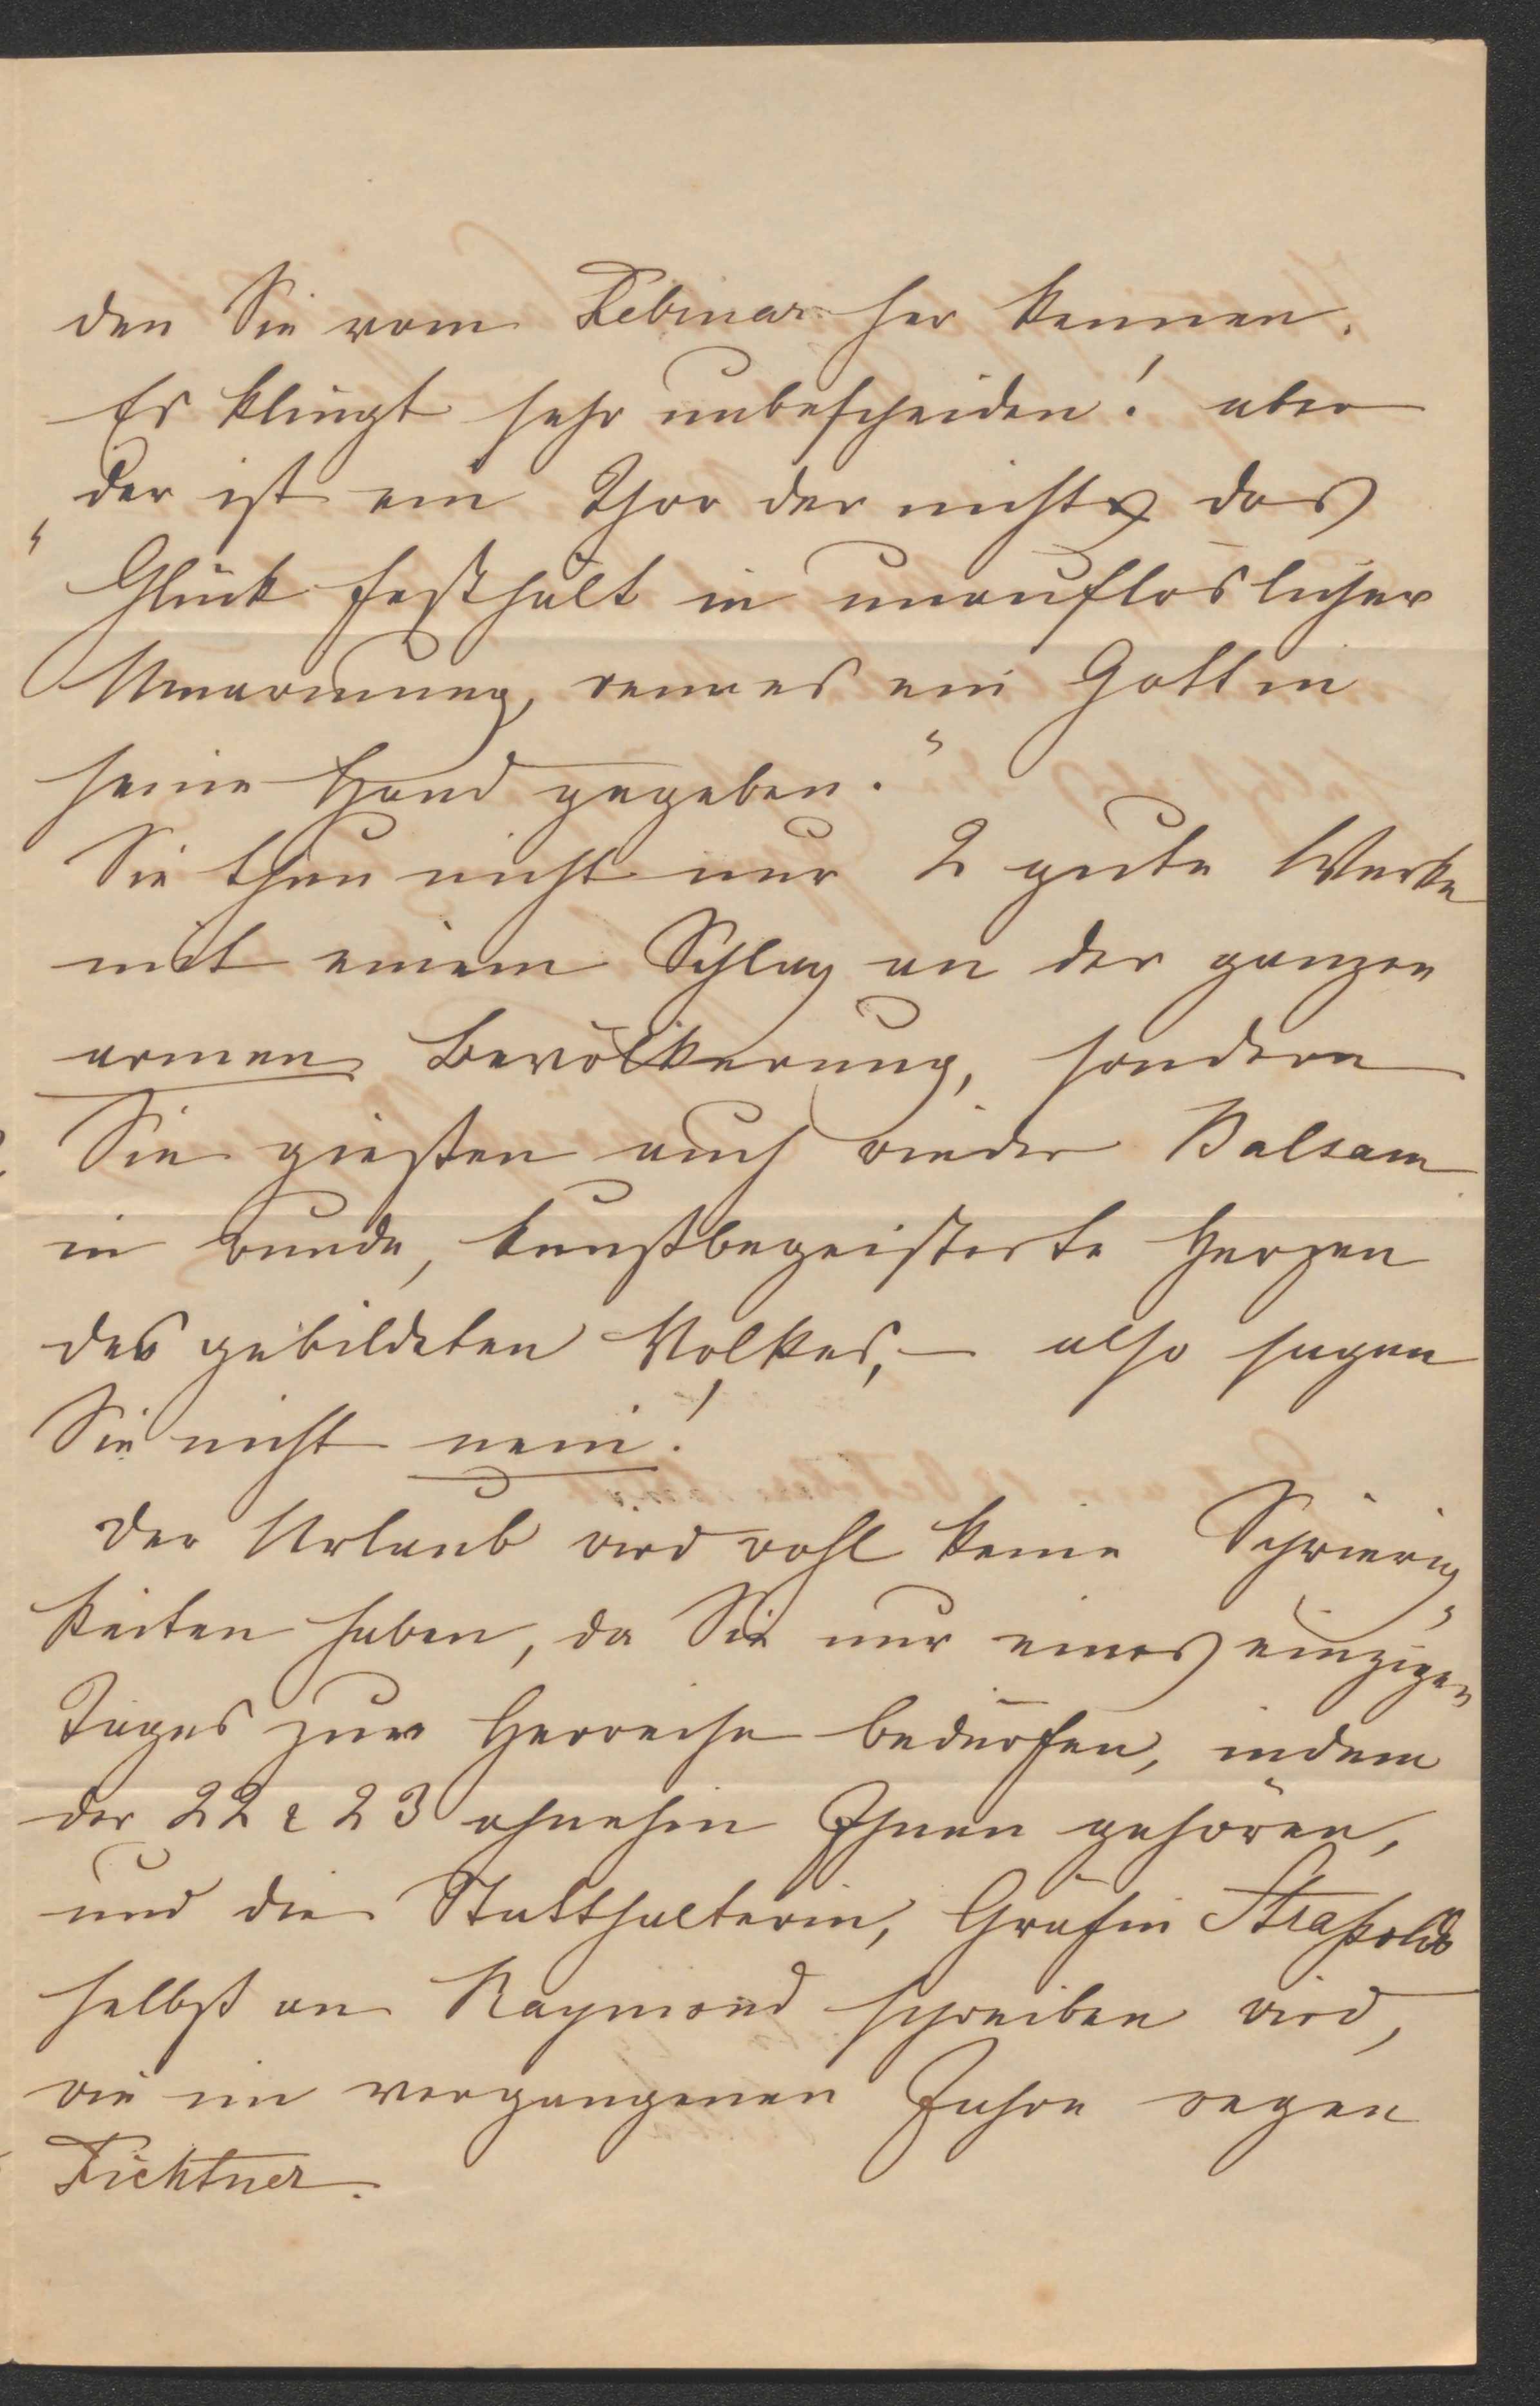 den Sie vom Febinar her kennen.
Es klingt sehr unbescheiden! aber
„der ist ein Thor der nicht das
Glück festhält in unauflöslicher
Umarmung, wenn es ein Gott in
seine Hand gegeben."
Sie thun nicht nur 2 gute Werke
mit einem Schlag an der ganzen
armen Bevölkerung, sondern
Sie gießen auch wieder Balsam
in wunde, kunstbegeisterte Herzen
des gebildeten Volkes, – also sagen
Sie nicht nein!
Der Urlaub wird wohl keine Schwierig-
keiten haben, da Sie nur eines einzigen
Tages zur Herreise bedürfen, indem
der 22 & 23 ohnehin Ihnen gehören,
und die Statthalterin, Gräfin Straßoldo
selbst an Raymond schreiben wird,
wie im vergangenen Jahre wegen
Fichtner.